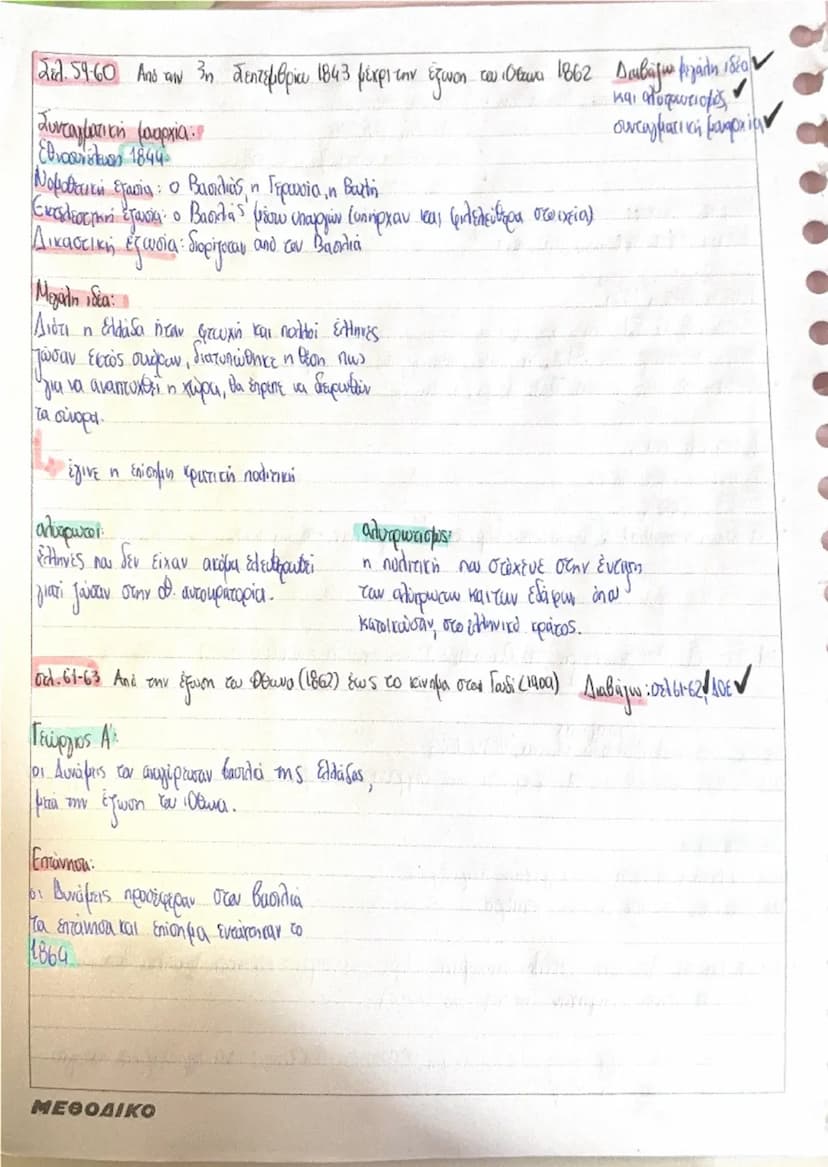 Σελ. 59-60 Από την 3η Σεπτεμβρίου 1843 μέχρι την έξωση του Όθωνα 1862 Διαβάζω μεγάλη ιδέα ✓
και αλυτρωτισμός, ✓
συνταγματική μοναρχία ✓
Συνταγματική μοναρχία:
Εθνοσυνέλευση 1844
Νομοθετική εξουσία: ο Βασιλιάς, η Γερουσία, η Βουλή
Εκτελεστική εξουσία: ο Βασιλιάς μέσω υπουργών (υπήρχαν και φιλελεύθερα στοιχεία)
Δικαστική εξουσία: διορίζοταν από τον Βασιλιά
Μεγάλη ιδέα:
Διότι η Ελλάδα ήταν φτωχή και πολλοί Έλληνες
ζούσαν εκτός συνόρων, διατυπώθηκε η θέση πως
για να αναπτυχθεί η χώρα, θα έπρεπε να διευρυνθούν
τα σύνορα.
έγινε η επίσημη κρατική πολιτική
αλύτρωτοι: αλυτρωτισμός:
Έλληνες που δεν είχαν ακόμα ελευθερωθεί η πολιτική που στόχευε στην ένταξη
γιατί ζούσαν στην οθ. αυτοκρατορία. των αλύτρωτων και των εδαφών όπου
κατοικούσαν, στο ελληνικό κράτος.
σελ. 61-63 Από την έξωση του Όθωνα (1862) έως το κίνημα στου Γουδί (1909) Διαβάζω: σελ 61-62 ✓ ΔΟΕ ✓
Γεώργιος Α':
οι Δυνάμεις τον ανακήρυσσαν βασιλιά της Ελλάδας,
μετά την έξωση του Όθωνα.
Επτάνησα:
οι Δυνάμεις προσέφεραν στον βασιλιά
τα επτάνησα και επίσημα ενώθηκαν το
1864
ΜΕΘΟΔΙΚΟ